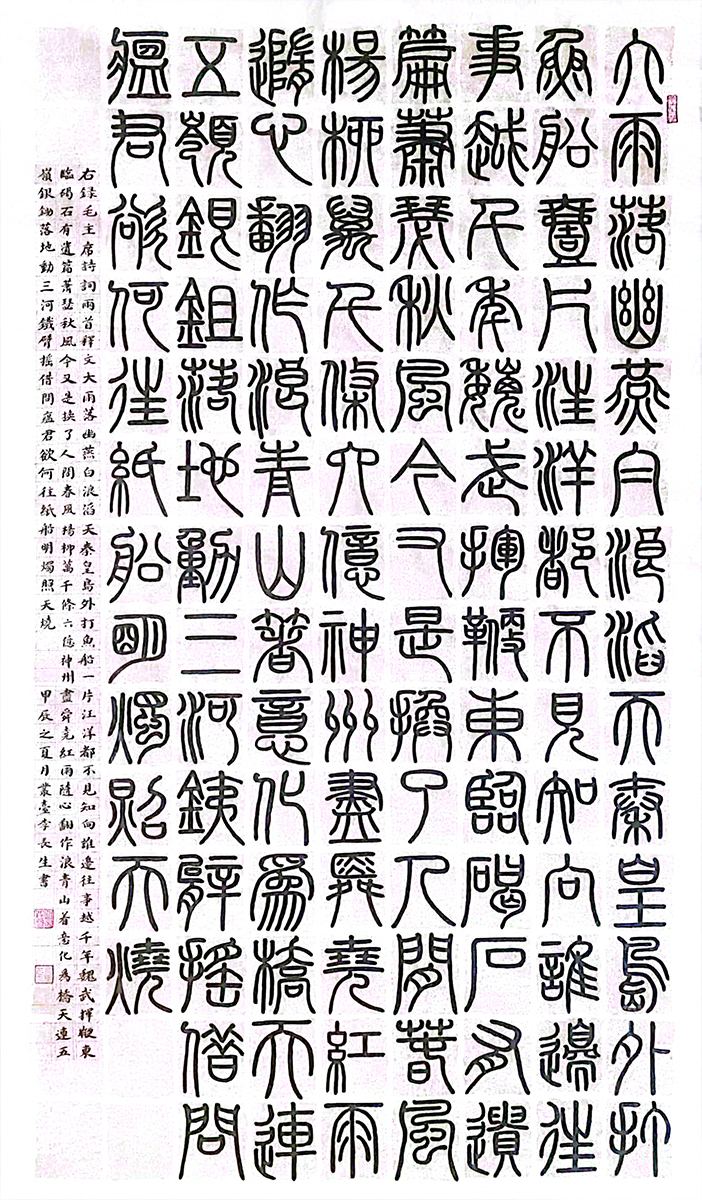 大雨落幽燕白浪滔天秦皇島外打
魚船壹片汪洋都不見知向誰邊往
事越千年魏武揮鞭東臨碣石有遺
篇蕭瑟秋風今又是換了人間春風
楊柳萬千條六億神州盡舜堯紅雨
隨心翻作浪青山著意化為橋天連
五嶺銀鉏落地動三河鐵臂搖借問
瘟君欲何往紙船明燭照天燒
右錄毛主席詩詞兩首釋文大雨落幽燕白浪滔天秦皇島外打魚船一片汪洋都不見知向誰邊往事越千年魏武揮鞭東
臨碣石有遺篇蕭瑟秋風今又是換了人間春風楊柳萬千條六億神州盡舜堯紅雨隨心翻作浪青山着意化為橋天連五
嶺銀鋤落地動三河鐵臂搖借問瘟君欲何往紙船明燭照天燒 甲辰之夏月叢臺李長生書